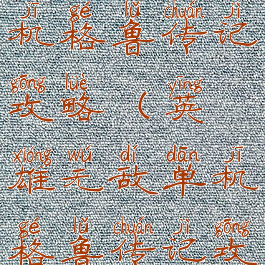 jī gé lǔ zhuàn jì
机格鲁传记
gōng lüè yīng
攻略（英
xióng wú dí dān jī
雄无敌单机
gé lǔ zhuàn jì gōng
格鲁传记攻